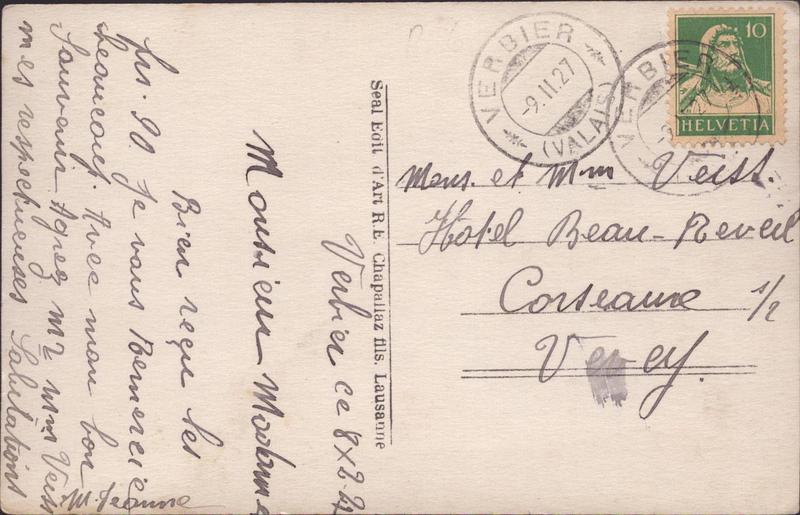 Verbier ce 8 X 2-27
Monsieur Madame
Bien reçu les
frs. 90 Je vous Remercie
beaucoup. Avec mon bon
Souvenir Agrez Mr Mm Veiss
mes respectueuses Salutations
M. Jeanne
Seal Edit. d'Art R.E. Chapallaz fils. Lausanne
VERBIER
-9.II.27
(VALAIS)
VERBIER
10
HELVETIA
Mons. et Mm Veiss.
Hôtel Beau-Reveil
Corseaux s/2
Vevey.